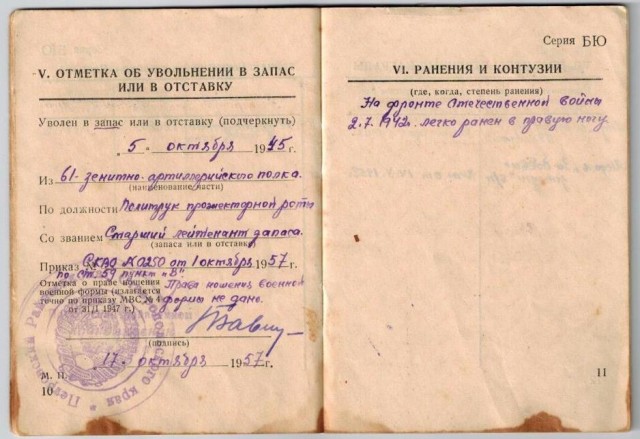 V. ОТМЕТКА ОБ УВОЛЬНЕНИИ В ЗАПАС
ИЛИ В ОТСТАВКУ
Уволен в запас или в отставку (подчеркнуть)
„5" октября 1945 г.
Из 61-зенитно-артиллерийского полка.
(наименование части)
По должности Политрук прожекторной роты
Со званием Старший лейтенант запаса.
(запаса или в отставке)
Приказ СКВО №0250 от 1 октября 1957 г.
по ст. 59 пункт "В"
Отметка о праве ношения
военной формы (излагается
точно по приказу МВС № 4
от 31/I 1947 г.)
Права ношения военной
формы не дано.
(подпись)
„17" октября 1957 г.
М. П.
10
Серия БЮ
VI. РАНЕНИЯ И КОНТУЗИИ
(где, когда, степень ранения)
На фронте Отечественной войны
2.7.1942г. легко ранен в правую ногу.
11